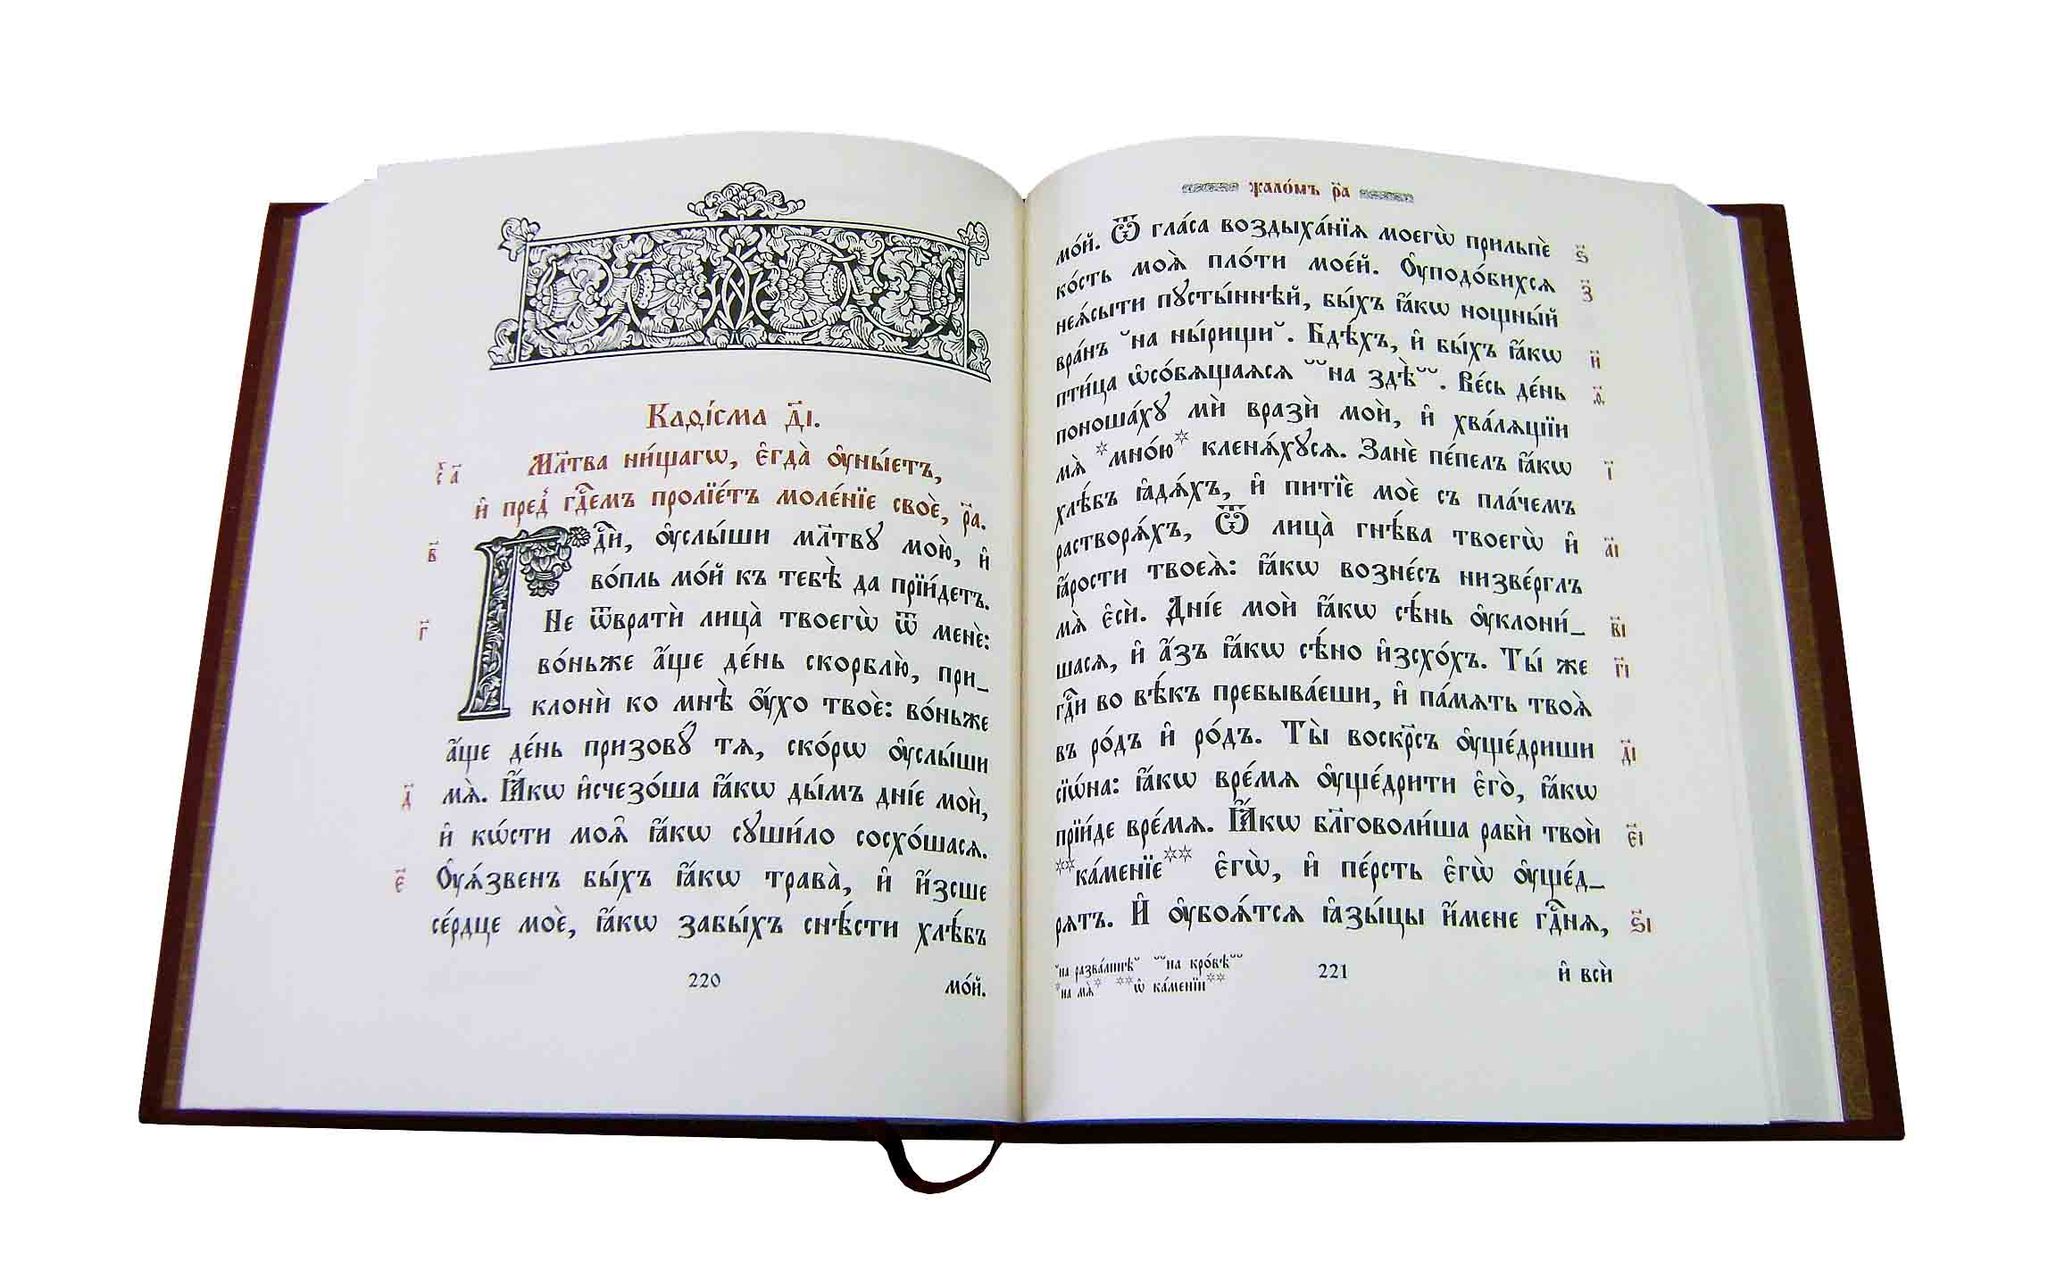 Каѳі́сма д҃і.
с҃ а҃ Мл҃тва ни́щагѡ, є҆гда̀ ᲂу҆ны́етъ,
и҆ пред̾ гдⷭ҇емъ проліе́тъ моле́ніе своѐ, р҃а.
в҃ Гдⷭ҇и, ᲂу҆слы́ши мл҃твꙋ мою̀, и҆
во́пль мо́й къ тебѣ̀ да прїи́детъ.
г҃ Не ѿвратѝ лица̀ твоегѡ̀ ѿ менє̀:
во́ньже а҆́ще де́нь скорблю̀, при_
клонѝ ко мнѣ̀ ᲂу҆́хо твоѐ: во́ньже
а҆́ще де́нь призовꙋ́ тѧ, ско́рѡ ᲂу҆слы́ши
д҃ мѧ̀. Ꙗ҆́кѡ и҆счезо́ша ꙗ҆́кѡ ды́мъ дні́е мои̑,
и҆ кѡ́сти моѧ̑ ꙗ҆́кѡ сꙋши́ло сосхо́шасѧ.
є҃ Оу҆ѧ́звенъ бы́хъ ꙗ҆́кѡ трава̀, и҆ и҆́зсше
се́рдце моѐ, ꙗ҆́кѡ забы́хъ снѣ́сти хлѣ́бъ
220
мо́й.
ѱало́мъ р҃а
мо́й. Ѿ гла́са воздыха́нїѧ моегѡ̀ прильпѐ ѕ҃
ко́сть моѧ̀ пло́ти мое́й. Оу҆подо́бихсѧ з҃
неѧ́сыти пꙋсты́ннѣй, бы́хъ ꙗ҆́кѡ нощны́й
вра́нъ ˘на ны́рищи˘. Бдѣ́хъ, и҆ бы́хъ ꙗ҆́кѡ и҃
пти́ца ѡ҆со́бѧщаѧсѧ ˘˘на здѣ̀˘˘. Ве́сь де́нь ѳ҃
поноша́хꙋ мѝ вразѝ мои̑, и҆ хва́лѧщїи
мѧ̀ *мно́ю* кленѧ́хꙋсѧ. Занѐ пе́пелъ ꙗ҆́кѡ і҃
хлѣ́бъ ꙗ҆дѧ́хъ, и҆ питїѐ моѐ съ пла́чемъ
растворѧ́хъ, Ѿ лица̀ гнѣ́ва твоегѡ̀ и҆ а҃і
ꙗ҆́рости твоеѧ̀: ꙗ҆́кѡ возне́съ низве́рглъ
мѧ̀ є҆сѝ. Дні́е мои̑ ꙗ҆́кѡ сѣ́нь ᲂу҆клони́_ в҃і
шасѧ, и҆ а҆́зъ ꙗ҆́кѡ сѣ́но и҆зсхо́хъ. Ты́ же г҃і
гдⷭ҇и во вѣ́къ пребыва́еши, и҆ па́мѧть твоѧ̀
въ ро́дъ и҆ ро́дъ. Ты̀ воскрⷭ҇съ ᲂу҆ще́дриши д҃і
сїѡ́на: ꙗ҆́кѡ вре́мѧ ᲂу҆ще́дрити є҆го̀, ꙗ҆́кѡ
прїи́де вре́мѧ. Ꙗ҆́кѡ бл҃говоли́ша рабѝ твои̑ є҃і
**ка́менїе** є҆гѡ̀, и҆ пе́рсть є҆гѡ̀ ᲂу҆ще́д_
рѧтъ. И҆ ᲂу҆боѧ́тсѧ ꙗ҆зы́цы и҆́мене гдⷭ҇нѧ, ѕ҃і
˘на разва́линѣ˘ ˘˘на кро́вѣ˘˘
*на мѧ̀* **ѡ҆ ка́менїи**
221
и҆ всѝ